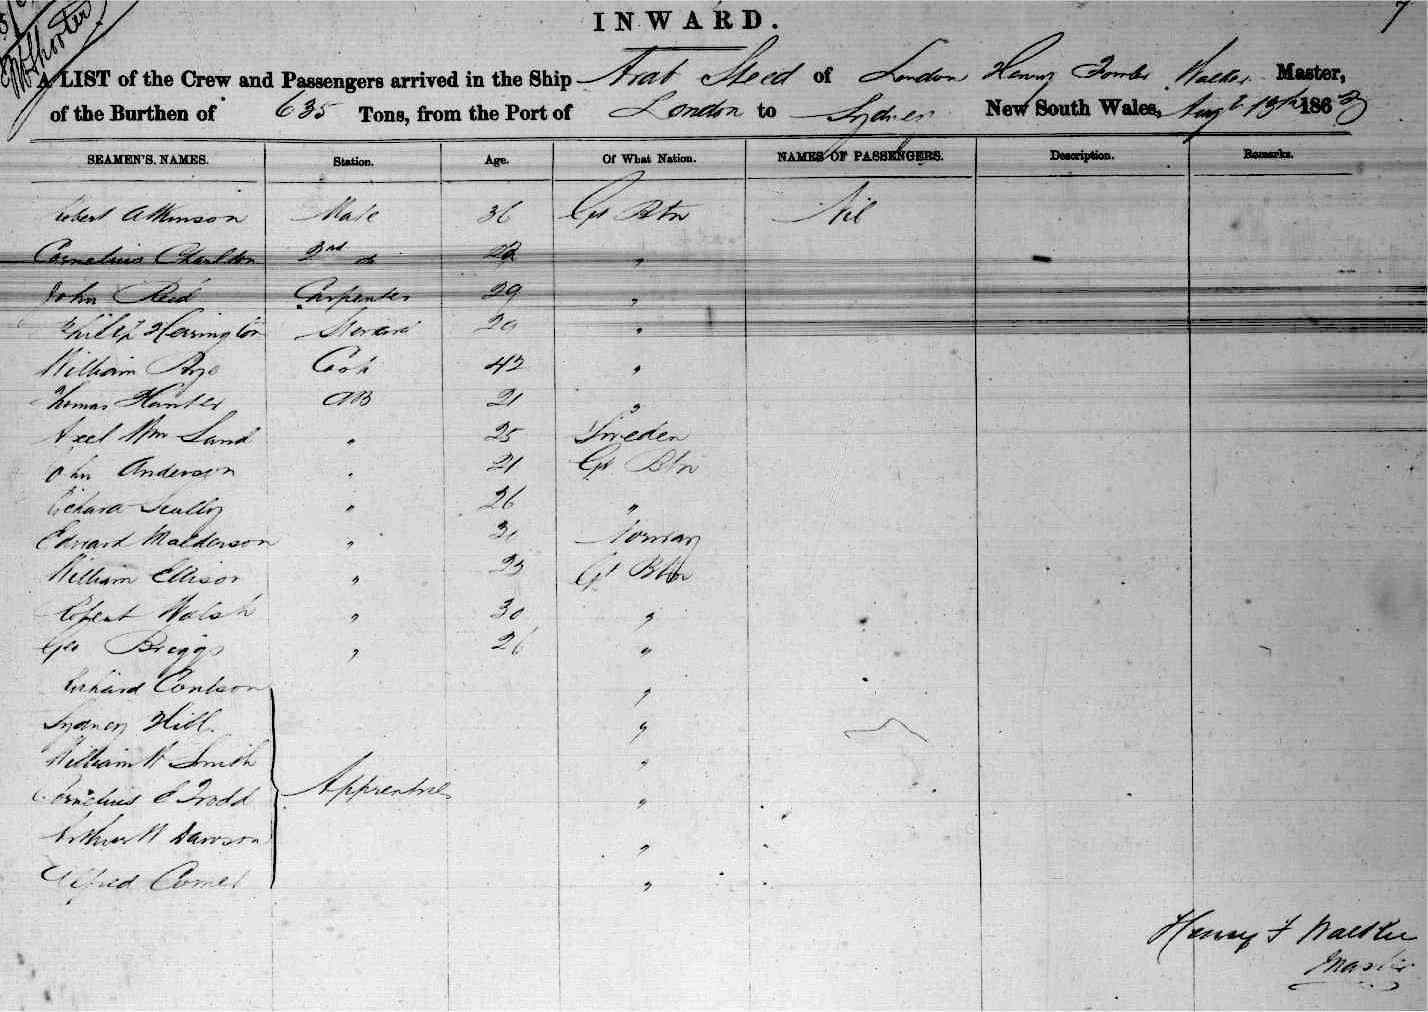 7
INWARD.
A LIST of the Crew and Passengers arrived in the Ship Arab Steed of London Henry Walker Master,
of the Burthen of 635 Tons, from the Port of London to Sydney New South Wales, Augt 13th 186
SEAMEN'S NAMES. Station. Age. Of What Nation. NAMES OF PASSENGERS. Description. Remarks.
Robert Atkinson Mate 36 Gt Btn Nil
Cornelius Charlton 2nd do "
John Reid Carpenter 29 "
Philip Herrington Steward 29 "
William Pye Cook 42 "
Thomas Hunter AB 21 "
Axel Wm Sand " 25 Sweden
John Anderson " 21 Gt Btn
Richard Scully " 26 "
Edward Malderson " Norway
William Ellison " 23 Gt Btn
Robert Walsh " 30 "
Geo Briggs " 26 "
Richard Coulson "
Sydney Hill "
William W Smith "
Cornelius E Trodd Apprentices "
Arthur W Dawson "
Alfred "
Henry F Walker
Master